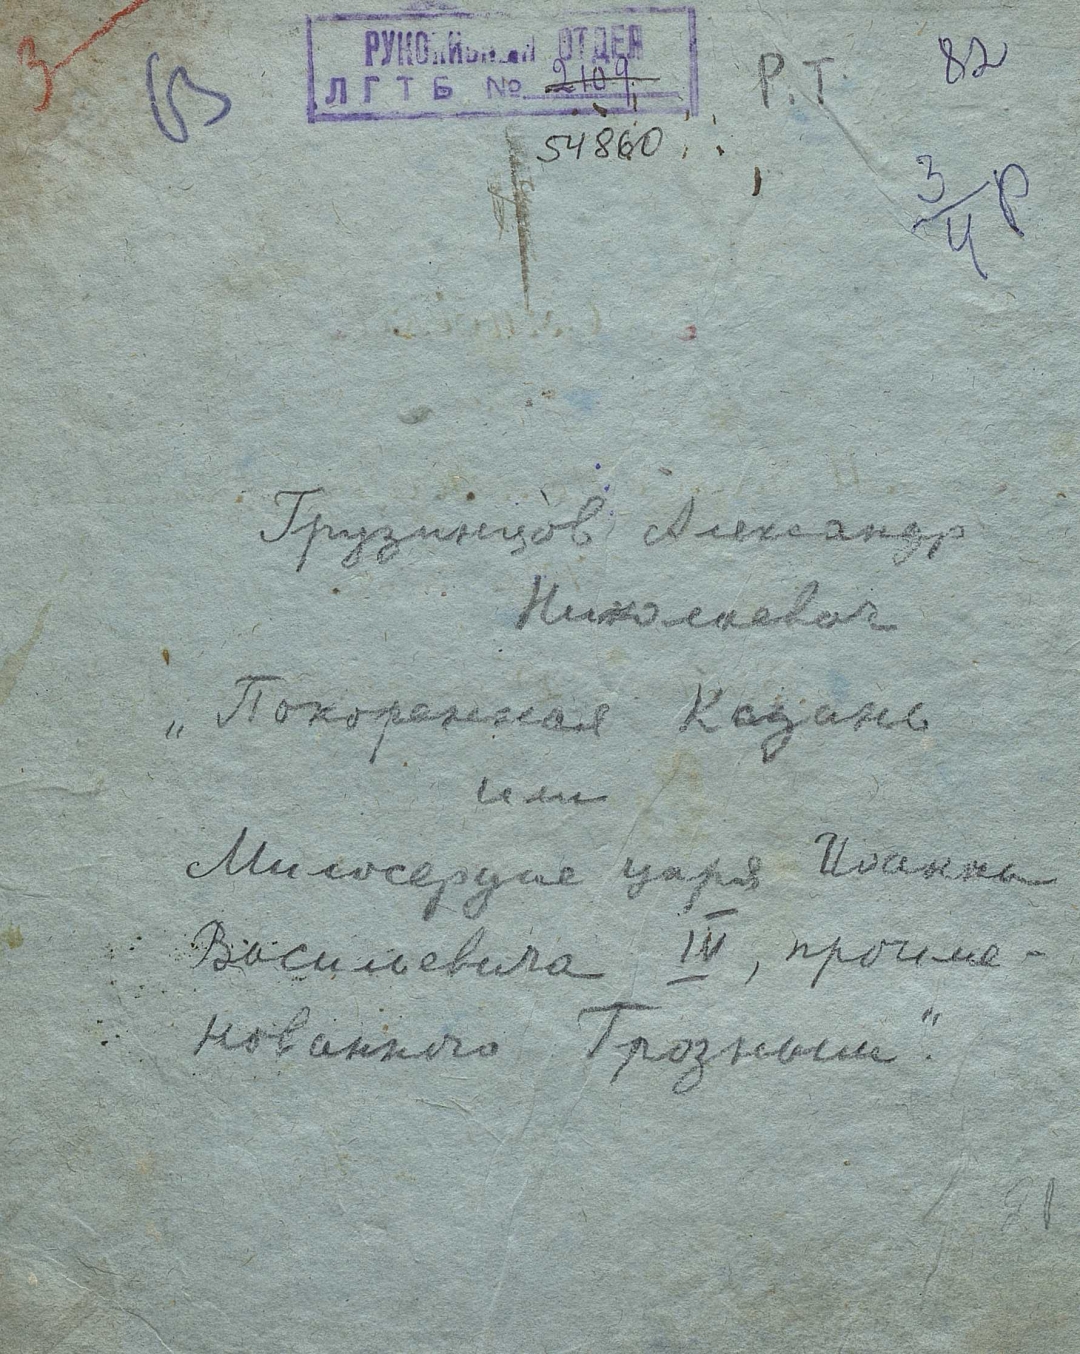 3
63
РУКОПИСНЫЙ ОТДЕЛ
ЛГТБ № 2109
54860
Р.Т
82
3/4 Р
Грузинцов Александр
Николаевич
„Покоренная Казань
или
Милосердие царя Иоанна
Васильевича IV, проиме-
нованного Грозным".